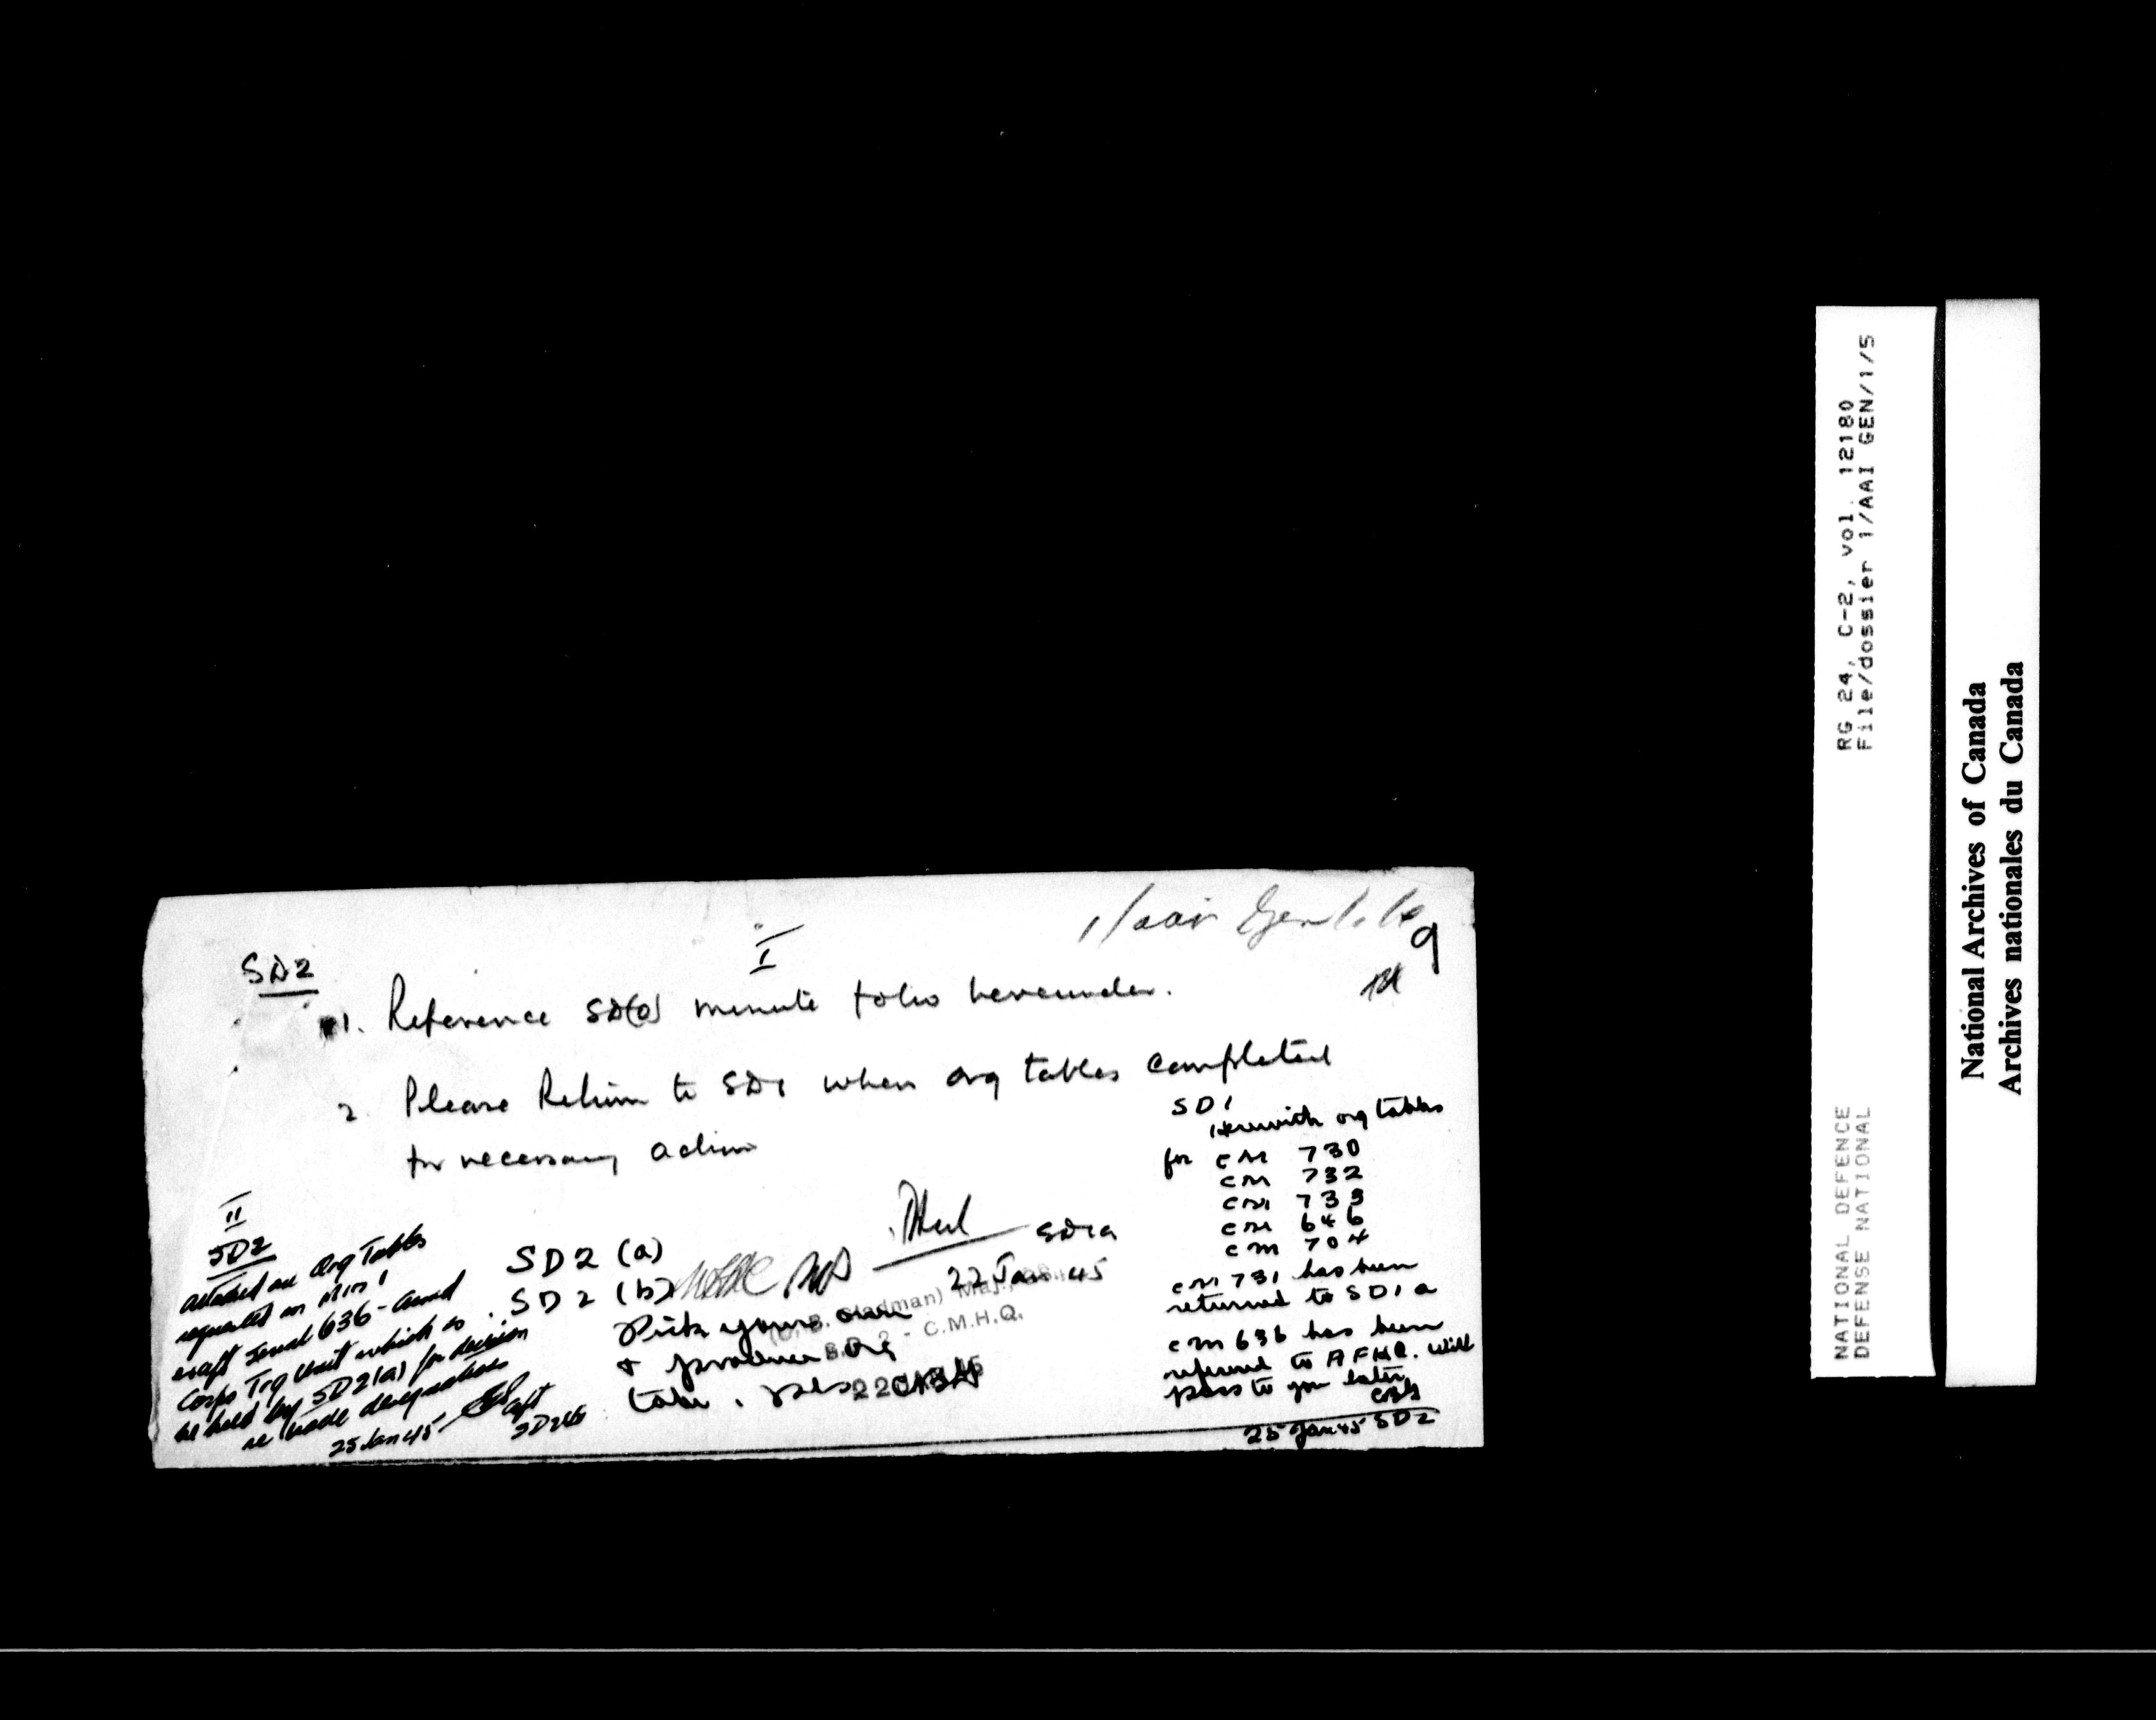 1/aai Gen/1/
9
I
SD2
1. Reference SD(o) minute folio hereunder.
2. Please Return to SD1 when org tables completed
for necessary action
SD1a
22 Jan 45
II
SD2
Attached are Org Tables
requested in Min 1
except Serial 636 - Armd
Corps Trg Unit which is
being held by SD2(a) for decision
re trade designations
25 Jan 45
Capt
SD2(b)
SD2 (a)
SD2 (b)
Pick yours out
& produce org
table. pls
Maj.,
S.D. 2 - C.M.H.Q.
SD1
Herewith org tables
for CM 730
CM 732
CM 733
CM 646
CM 704
CM 731 has been
returned to SD1a
CM 636 has been
referred to AFHQ. Will
pass to you later
25 Jan 45 SD2
RG 24, C-2, vol. 12180
File/dossier 1/AAI GEN/1/5
NATIONAL DEFENCE
DEFENSE NATIONAL
National Archives of Canada
Archives nationales du Canada